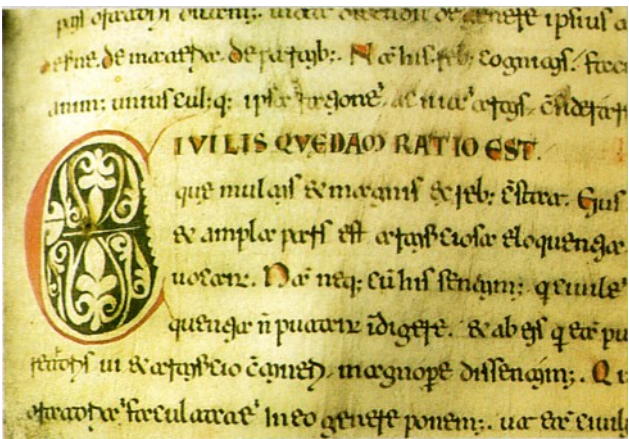 oratoriis dicimus; ipsius a
de fine. de materia. de partib; Nā his reb; cognitis. fac
anim; unius cui;q; ipsā ratione ac uiā artis. c̄siderar
CIVILIS QVEDAM RATIO EST.
que multis & magnis & reb; c̄stat. Eius
& ampla pars est artificiosa eloquentia
uocant. Nā neq; cū his sentim; q ciuile
quentia n̄ putant īdigere. & ab eis q eā pu
retoris ui & artificio c̄tineri. magnopere dissentim;. Qu
oratoriā facultatē in eo genere ponem;. ut eā ciuil